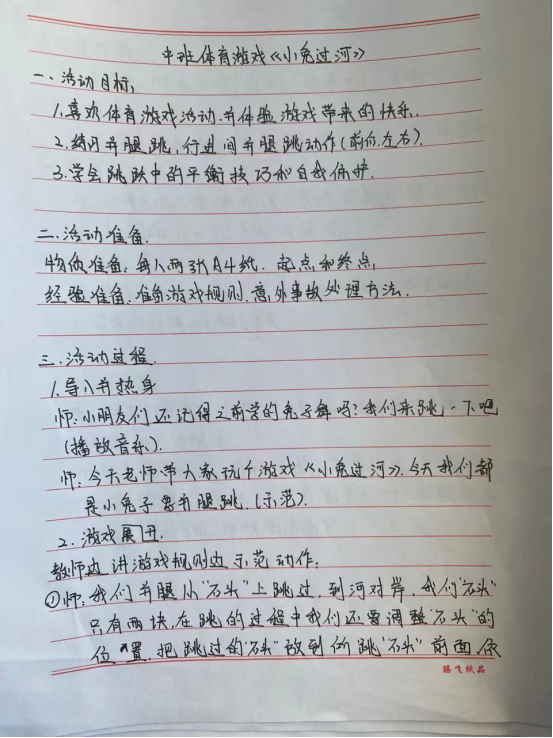 中班体育游戏《小兔过河》
一、活动目标,
1.喜欢体育游戏活动.并体验游戏带来的快乐.
2.练习并腿跳,行进间并腿跳动作(前后.左右).
3.学会跳跃中的平衡技巧和自我保护.
二.活动准备.
物质准备:每人两张A4纸.起点和终点,
经验准备.准备游戏规则.意外事故处理方法.
三.活动过程.
1.导入并热身
师:小朋友们还记得之前学的兔子舞吗?我们来跳一下吧
(播放音乐).
师:今天老师带大家玩个游戏《小兔过河》.今天我们都
是小兔子要并腿跳.(示范).
2.游戏展开.
教师边讲游戏规则边示范动作.
①师:我们并腿从“石头”上跳过.到河对岸.我们“石头”
只有两块.在跳的过程中我们还要调整“石头”的
位置.把跳过的“石头”放到你跳“石头”前面.依
腾飞纸品